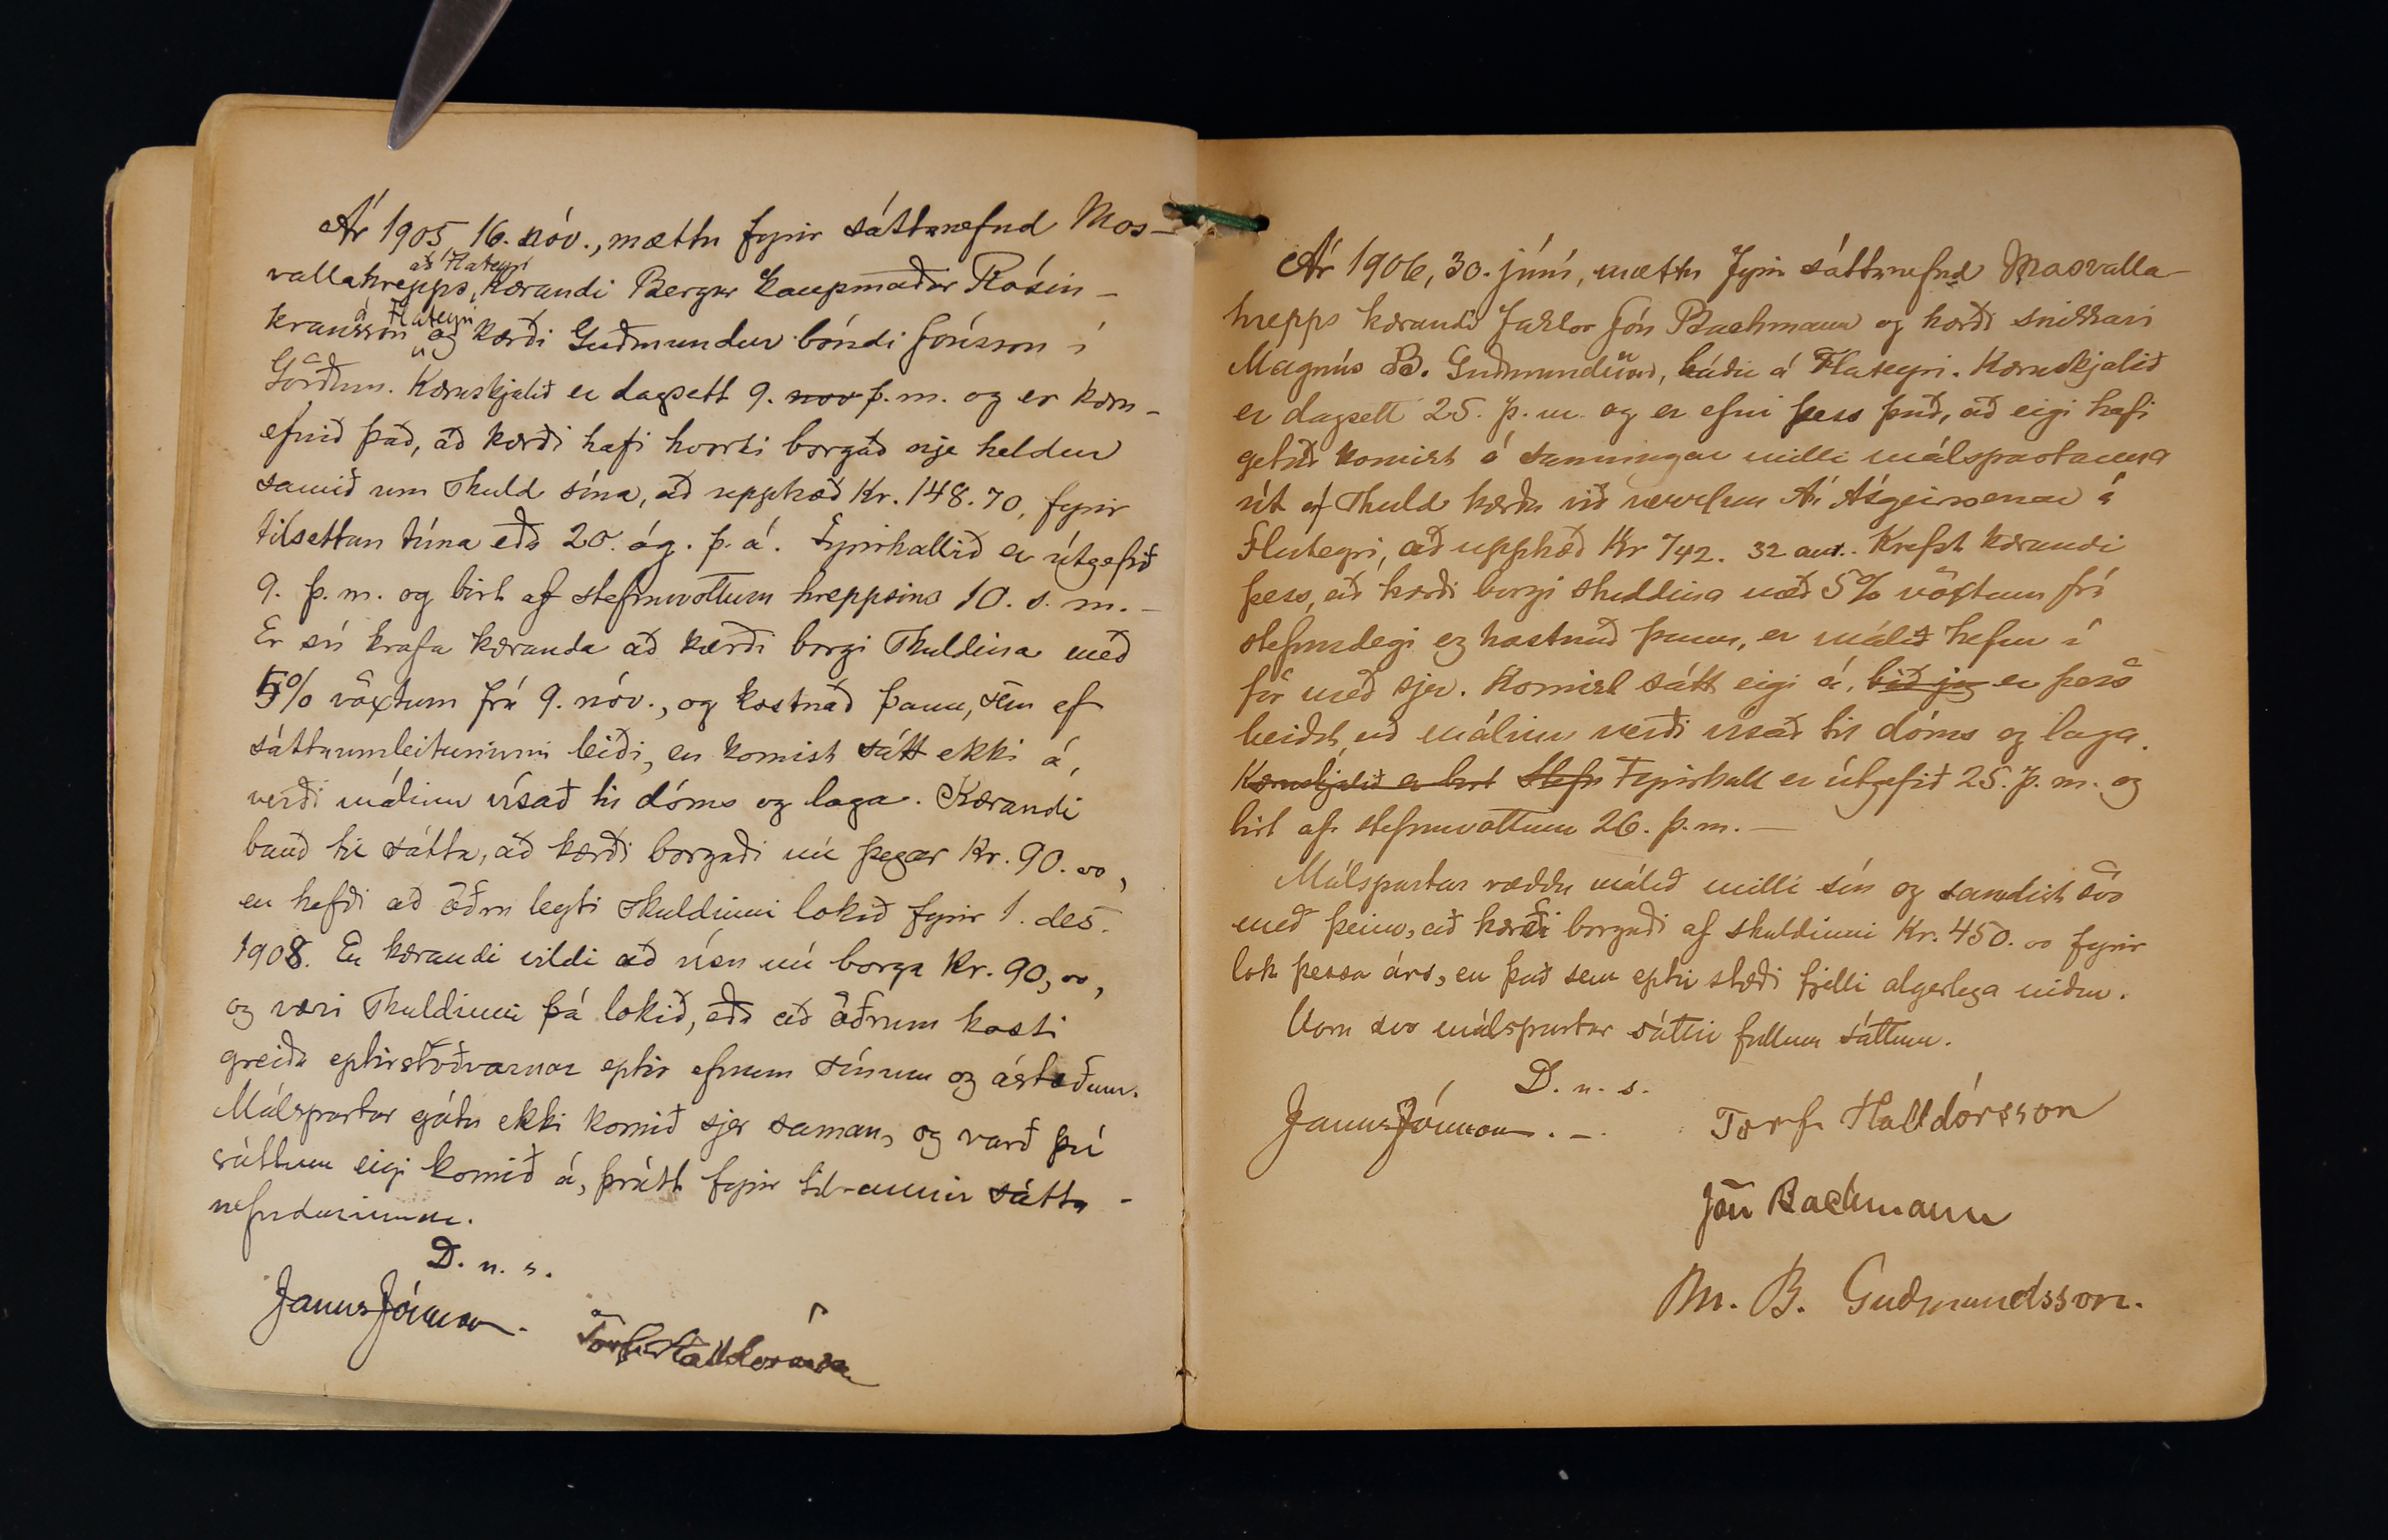 Ár 1905, 16. nóv., mættu fyrir sáttanefnd Mos-
að Flateyri
vallahrepps, kærandi Bergur kaupmaður Rósin-
á Flateyri
kransson og kærði Guðmundur bóndi Jónsson í
Görðum. Kæruskjalið er dagsett 9. nov þ.m. og er kæru-
efnið það, að kærði hafi hvorki borgað nje heldur
samið um skuld sína, að upphæð Kr. 148.70, fyrir
tilsettan tíma eða 20. ág. þ. á. Fyrirkallið er útgefið
9. þ.m. og birt af stefnuvottum hreppsins 10. s. m. -
Er sú krafa kæranda að kærði borgi skuldina með
5% vöxtum frá 9. nóv., og kostnað þann, sem af
sáttaumleituninni leiði, en komist sátt ekki á,
verði málinu vísað til dóms og laga. Kærandi
bauð til sátta, að kærði borgaði nú þegar Kr. 90.00,
en hefði að öðru leyti skuldinni lokið fyrir 1. des.
1908. En kærandi vildi að vísu nú borga Kr. 90,00,
og væri skuldinni þá lokið, eða að öðrum kosti
greiða eptirstöðvarnar eptir efnum sínum og ástæðum.
Málspartar gátu ekki komið sjer saman, og varð því
sáttum eigi komið á, þrátt fyrir tilraunir sátta-
nefndarinnar.
D. n. s.
Janus Jónsson. Torfi Halldórsson
Ár 1906, 30. júní, mættu fyrir sáttanefnd Mosvalla-
hrepps kærandi faktor Jón Bachmann og kærði snikkari
Magnús B. Guðmundsson, báðir á Flateyri. Kæruskjalið
er dagsett 25. þ.m. og er efni þess það, að eigi hafi
getað komist á samningar milli málspartanna
út af skuld kærða við verslun Á. Ásgeirssonar á
Flateyri, að upphæð Kr 742. 32 aur. Krefst kærandi
þess, að kærði borgi skuldina með 5% vöxtum frá
stefnudegi og kostnað þann, er málið hefur í
för með sjer. Komist sátt eigi á, bið jeg er þess
beiðst, að málinu verði vísað til dóms og laga.
Kæruskjalið er birt Stefn Fyrirkall er útgefið 25. þ.m. og
birt af stefnuvottum 26. þ.m. —
Málspartar ræddu málið milli sín og samdist svo
með þeim, að kærði borgaði af skuldinni Kr. 450.00 fyrir
lok þessa árs, en það sem eptir stæði fjelli algerlega niður.
Voru svo málspartar sáttir fullum sáttum.
D. n. s.
Janus Jónsson. - Torfi Halldórsson
Jón Bachmann
M. B. Guðmundsson.